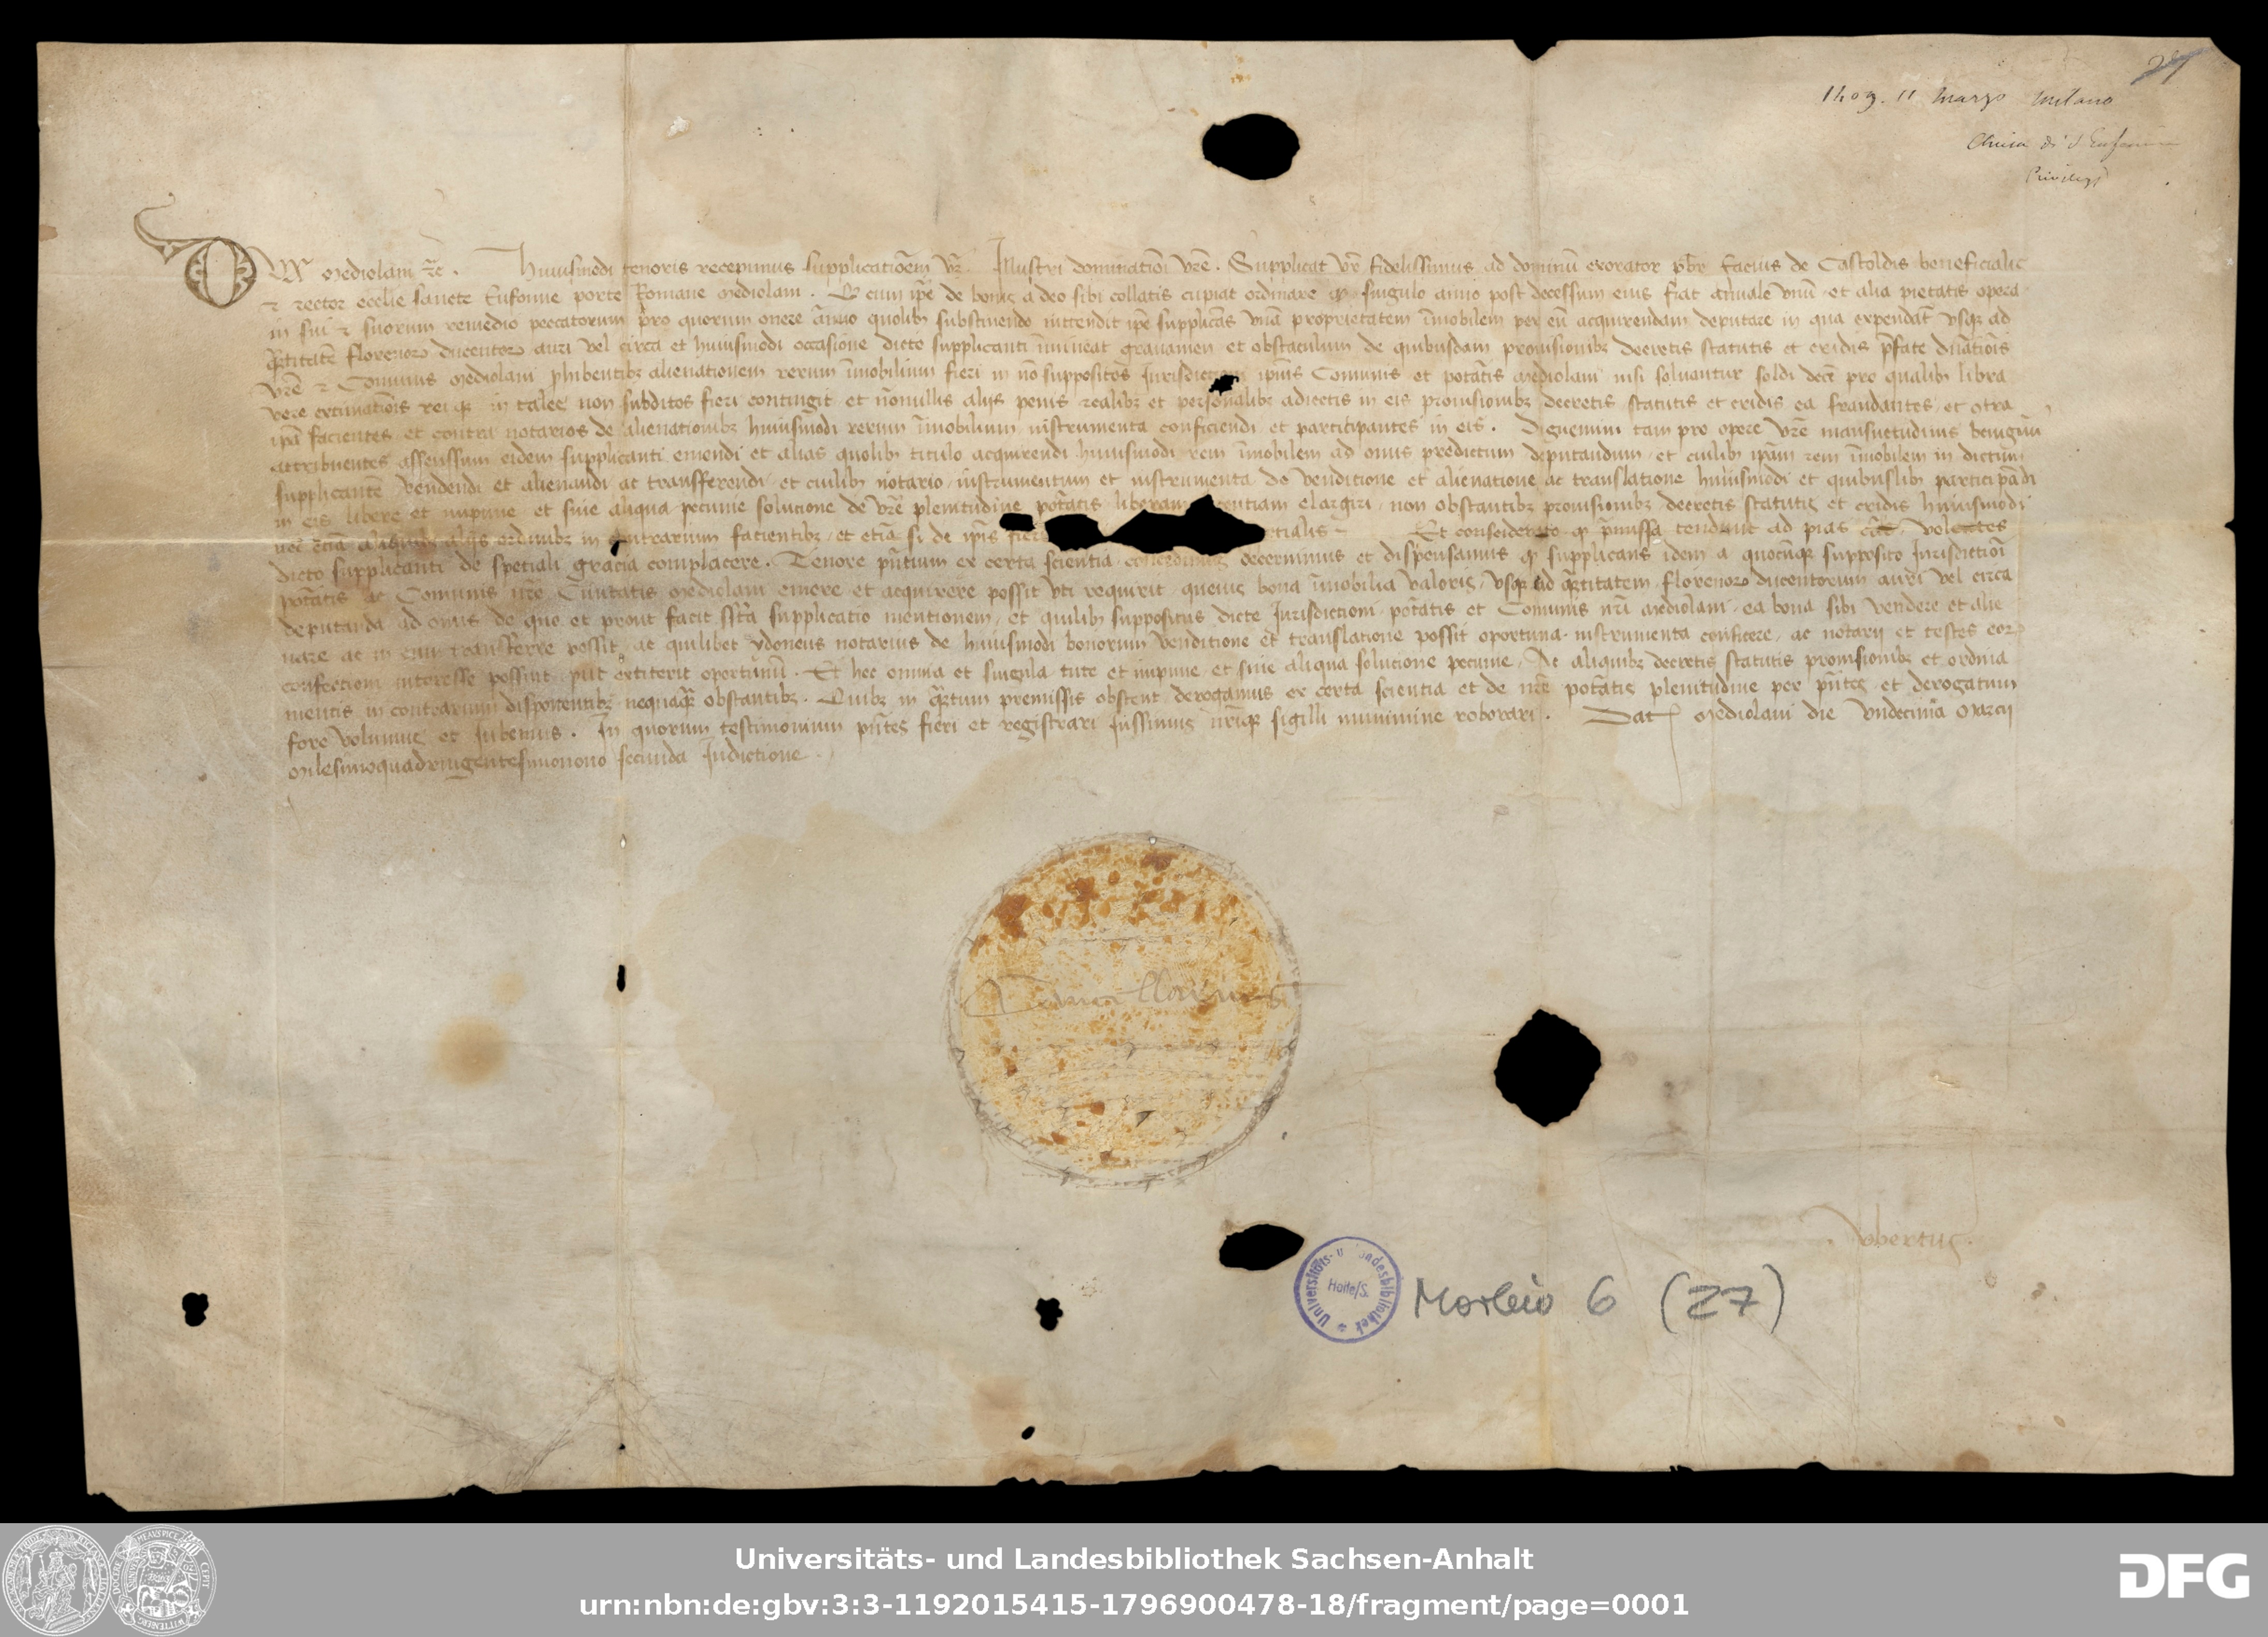 27
1409. 11 Marzo Milano
Chiesa di S Eufemia
Privilegi
Dux Mediolani etc̄. Huiusmodi tenoris recepimus supplicatiōem vꝫ. Illustri dominatiōi vr̄e. Supplicat vr̄ fidelissimus ad dominū exorator pb̄r Facius de Castoldis beneficialis
et rector ecclīe sancte Eufomie porte Romane Mediolani. Qd cum ip̄e de bonis a deo sibi collatis cupiat ordinare qp singulo anno post decessum eius fiat annuale vnū et alia pietatis opera
in sui et suorum remedio peccatorum pro quorum onere ānuo quolibꝫ substinendo intendit ip̄e supplicās vnā proprietatem īmobilem per eū acquirendam deputare in qua expendāt vsqꝫ ad
q̄ntitatē florenoꝝ ducentoꝝ auri vel circa et huiusmodi occasione dicto supplicanti īmineat gravamen et obstaculum de quibusdam provisionibꝫ decretis statutis et cridis p̄fate dn̄ationis
vr̄e et Comunis Mediolani phibentibꝫ alienationem rerum īmobilium fieri in nō suppositos Jurisdictioni ip̄ius Comunis et potātis Mediolani nisi solvantur soldi decē pro qualibꝫ libra
vere extimatiōis rei qp in tales non subditos fieri contingit et nōnullis alijs penis realibꝫ et personalibꝫ adiectis in eis provisionibꝫ decretis statutis et cridis ea fraudantes et cōtra
ipā facientes et contra notarios de alienationibꝫ huiusmodi rerum īmobilium instrumenta conficiendi et participantes in eis. Dignemini tam pro opere vr̄e mansuetudinis benignū
attribuentes assenssum eidem supplicanti emendi et alias quolibꝫ titulo acquirendi huiusmodi rem īmobilem ad onus predictum deputandum et cuilibꝫ ipām rem īmobilem in dictum
supplicantē vendendi et alienandi ac transfferendi et cuilibꝫ notario instrumentum et instrumenta de venditione et alienatione ac translatione huiusmodi et quibuslibꝫ participādi
in eis libere et impune et sine aliqua pecunie solucione de vr̄e plenitudine potātis liberam centiam elargiri non obstantibꝫ provisionibꝫ decretis statutis et cridis huiusmodi
nec eciā alijs ordinibꝫ in contrarium facientibꝫ et etiā si de ip̄is fieri tialis Et considerato qp p̄missa tendunt ad pias volentes
dicto supplicanti de speciali gracia complacere. Tenore pn̄tium ex certa scientia concedimus decernimus et dispensamus qp supplicans idem a quocūqꝫ supposito Jurisdictiōi
potātis ac Comunis nr̄e Civitatis Mediolani emere et acquirere possit vti requirit quevis bona īmobilia valoris vsqꝫ ad q̄ntitatem florenoꝝ ducentorum auri vel circa
deputanda ad onus de quo et prout facit sp̄ta supplicatio mentionem, et quilibꝫ suppositus dicte Jurisdictioni potātis et Comunis nr̄i Mediolani ea bona sibi vendere et alie
nare ac in eum transferre possit ac quilibet ydoneus notarius de huiusmodi bonorum venditione et translatione possit oportuna instrumenta conficere, ac notarij et testes eoꝝ
confectioni interesse possint put extiterit oportunū. Et hec omnia et singula tute et impune et sine aliqua solucione pecunie, Ac aliquibꝫ decretis statutis provisionibꝫ et ordina
mentis in contrarium disponentibꝫ nequaqꝫ obstantibꝫ. Quibꝫ in q̄ntum premissis obstent derogamus ex certa scientia et de nr̄e potātis plenitudine per pn̄tes et derogatum
fore volumus et Jubemus. In quorum testimonium pn̄tes fieri et registrari Jussimus nr̄iqꝫ sigilli munimine roborari. Dat Mediolani die vndecima Marcij
Milesimoquadringentesimonono secunda Indictione.
Vbertus.
Universitäts- u Landesbibliothek Halle/S.
Morbio 6 (27)
Universitäts- und Landesbibliothek Sachsen-Anhalt
urn:nbn:de:gbv:3:3-1192015415-1796900478-18/fragment/page=0001
DFG